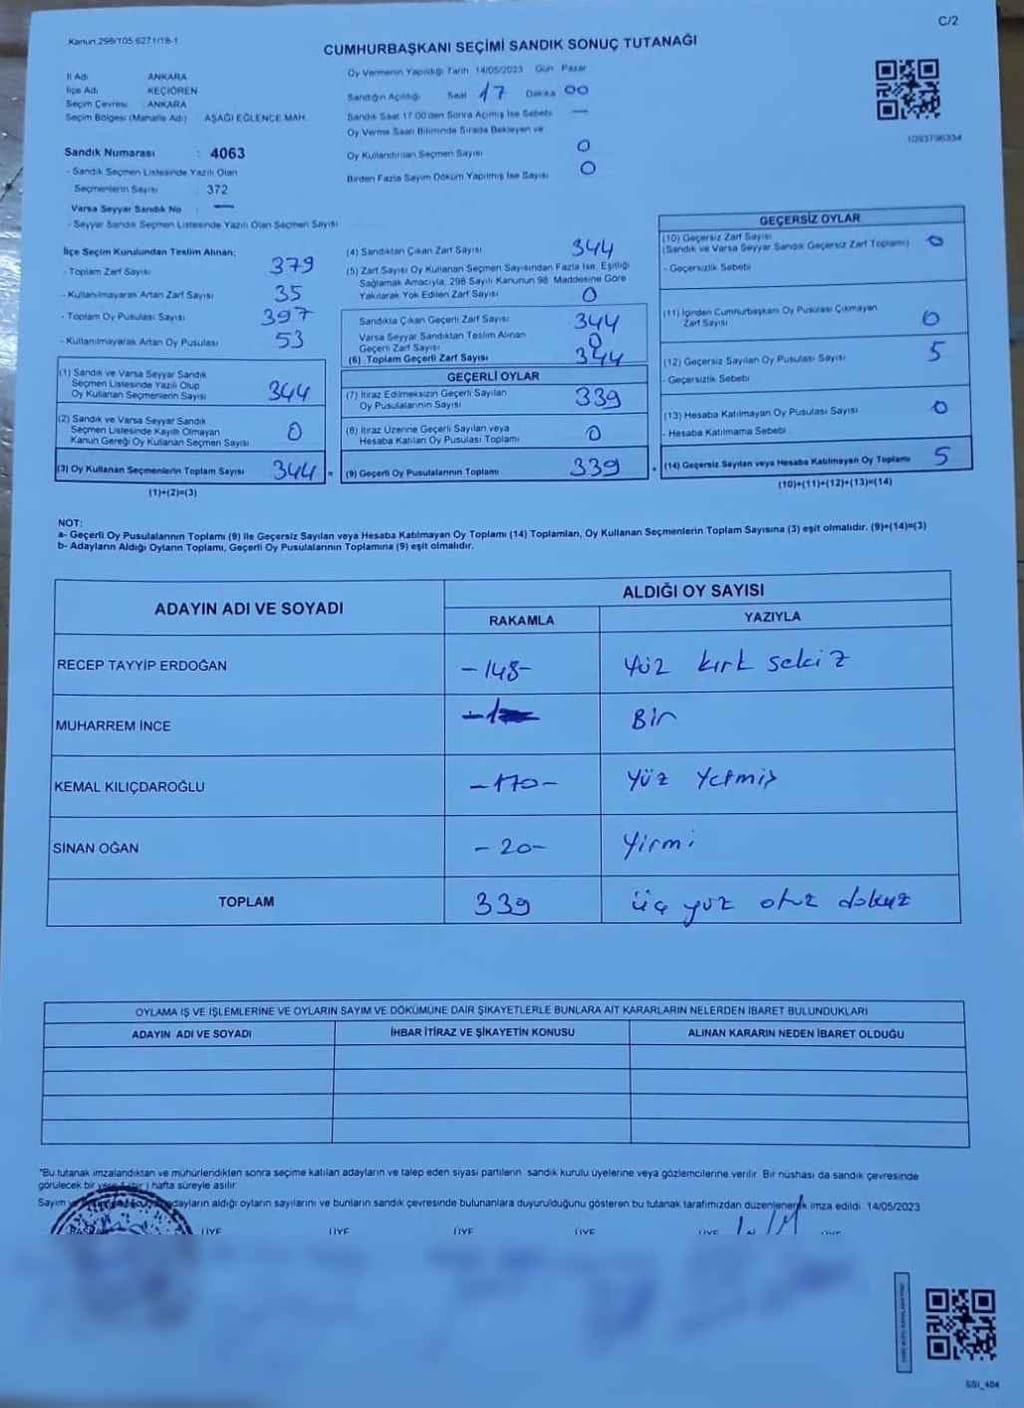 C/2
Kanun 298/105 6271/18-1
CUMHURBAŞKANI SEÇİMİ SANDIK SONUÇ TUTANAĞI
İl Adı ANKARA
İlçe Adı KEÇİÖREN
Seçim Çevresi : ANKARA
Seçim Bölgesi (Mahalle Adı) AŞAĞI EĞLENCE MAH.
Sandık Numarası : 4063
- Sandık Seçmen Listesinde Yazılı Olan
Seçmenlerin Sayısı : 372
Varsa Seyyar Sandık No : —
- Seyyar Sandık Seçmen Listesinde Yazılı Olan Seçmen Sayısı
Oy Vermenin Yapıldığı Tarih 14/05/2023 Gün Pazar
Sandığın Açılığı Saat 17 Dakika 00
Sandık Saat 17:00'den Sonra Açılmış İse Sebebi —
Oy Verme Saati Bitiminde Sırada Bekleyen ve
Oy Kullandırılan Seçmen Sayısı 0
Birden Fazla Sayım Döküm Yapılmış İse Sayısı 0
1093796334
İlçe Seçim Kurulundan Teslim Alınan;
- Toplam Zarf Sayısı 379
- Kullanılmayarak Artan Zarf Sayısı 35
- Toplam Oy Pusulası Sayısı 397
- Kullanılmayarak Artan Oy Pusulası 53
(1) Sandık ve Varsa Seyyar Sandık
Seçmen Listesinde Yazılı Olup
Oy Kullanan Seçmenlerin Sayısı 344
(2) Sandık ve Varsa Seyyar Sandık
Seçmen Listesinde Kayıtlı Olmayan
Kanun Gereği Oy Kullanan Seçmen Sayısı 0
(3) Oy Kullanan Seçmenlerin Toplam Sayısı 344
(1)+(2)=(3)
(4) Sandıktan Çıkan Zarf Sayısı 344
(5) Zarf Sayısı Oy Kullanan Seçmen Sayısından Fazla İse, Eşitliği
Sağlamak Amacıyla, 298 Sayılı Kanunun 98. Maddesine Göre
Yakılarak Yok Edilen Zarf Sayısı 0
Sandıkta Çıkan Geçerli Zarf Sayısı 344
Varsa Seyyar Sandıktan Teslim Alınan
Geçerli Zarf Sayısı 0
(6) Toplam Geçerli Zarf Sayısı 344
GEÇERLİ OYLAR
(7) İtiraz Edilmeksizin Geçerli Sayılan
Oy Pusulalarının Sayısı 339
(8) İtiraz Üzerine Geçerli Sayılan veya
Hesaba Katılan Oy Pusulası Toplamı 0
= (9) Geçerli Oy Pusulalarının Toplamı 339
GEÇERSİZ OYLAR
(10) Geçersiz Zarf Sayısı
(Sandık ve Varsa Seyyar Sandık Geçersiz Zarf Toplamı) 0
- Geçersizlik Sebebi
(11) İçinden Cumhurbaşkanı Oy Pusulası Çıkmayan
Zarf Sayısı 0
(12) Geçersiz Sayılan Oy Pusulası Sayısı 5
- Geçersizlik Sebebi
(13) Hesaba Katılmayan Oy Pusulası Sayısı 0
- Hesaba Katılmama Sebebi
+ (14) Geçersiz Sayılan veya Hesaba Katılmayan Oy Toplamı 5
(10)+(11)+(12)+(13)=(14)
NOT:
a- Geçerli Oy Pusulalarının Toplamı (9) ile Geçersiz Sayılan veya Hesaba Katılmayan Oy Toplamı (14) Toplamları, Oy Kullanan Seçmenlerin Toplam Sayısına (3) eşit olmalıdır. (9)+(14)=(3)
b- Adayların Aldığı Oyların Toplamı, Geçerli Oy Pusulalarının Toplamına (9) eşit olmalıdır.
ADAYIN ADI VE SOYADI ALDIĞI OY SAYISI
RAKAMLA YAZIYLA
RECEP TAYYİP ERDOĞAN -148- Yüz kırk sekiz
MUHARREM İNCE -1- Bir
KEMAL KILIÇDAROĞLU -170- Yüz Yetmiş
SİNAN OĞAN -20- Yirmi
TOPLAM 339 üç yüz otuz dokuz
OYLAMA İŞ VE İŞLEMLERİNE VE OYLARIN SAYIM VE DÖKÜMÜNE DAİR ŞİKAYETLERLE BUNLARA AİT KARARLARIN NELERDEN İBARET BULUNDUKLARI
ADAYIN ADI VE SOYADI İHBAR İTİRAZ VE ŞİKAYETİN KONUSU ALINAN KARARIN NEDEN İBARET OLDUĞU
"Bu tutanak imzalandıktan ve mühürlendikten sonra seçime katılan adayların ve talep eden siyasi partilerin, sandık kurulu üyelerine veya gözlemcilerine verilir. Bir nüshası da sandık çevresinde
görülecek bir hafta süreyle asılır.
Sayım adayların aldığı oyların sayılarını ve bunların sandık çevresinde bulunanlara duyurulduğunu gösteren bu tutanak tarafımızdan düzenlenerek imza edildi. 14/05/2023
ÜYE ÜYE ÜYE ÜYE ÜYE ÜYE